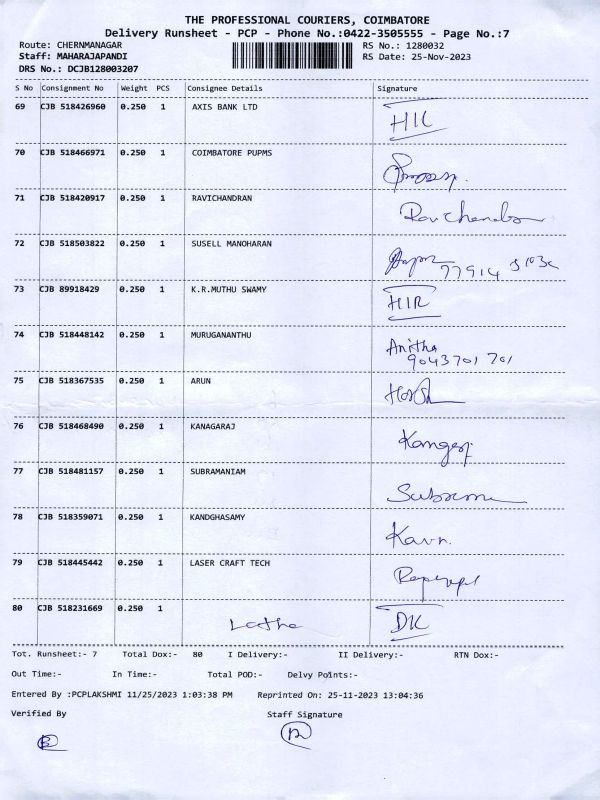 THE PROFESSIONAL COURIERS, COIMBATORE
Delivery Runsheet - PCP - Phone No.:0422-3505555 - Page No.:7
Route: CHERNMANAGAR RS No.: 1280032
Staff: MAHARAJAPANDI RS Date: 25-Nov-2023
DRS No.: DCJB128003207
S No Consignment No Weight PCS Consignee Details Signature
69 CJB 518426960 0.250 1 AXIS BANK LTD
70 CJB 518466971 0.250 1 COIMBATORE PUPMS
71 CJB 518420917 0.250 1 RAVICHANDRAN
72 CJB 518503822 0.250 1 SUSELL MANOHARAN
77914
73 CJB 89918429 0.250 1 K.R.MUTHU SWAMY
74 CJB 518448142 0.250 1 MURUGANANTHU Anitha
9043701 701
75 CJB 518367535 0.250 1 ARUN
76 CJB 518468490 0.250 1 KANAGARAJ
77 CJB 518481157 0.250 1 SUBRAMANIAM
78 CJB 518359071 0.250 1 KANDGHASAMY
79 CJB 518445442 0.250 1 LASER CRAFT TECH
80 CJB 518231669 0.250 1 Latha DK
Tot. Runsheet:- 7 Total Dox:- 80 I Delivery:- II Delivery:- RTN Dox:-
Out Time:- In Time:- Total POD:- Delvy Points:-
Entered By :PCPLAKSHMI 11/25/2023 1:03:38 PM Reprinted On: 25-11-2023 13:04:36
Verified By Staff Signature